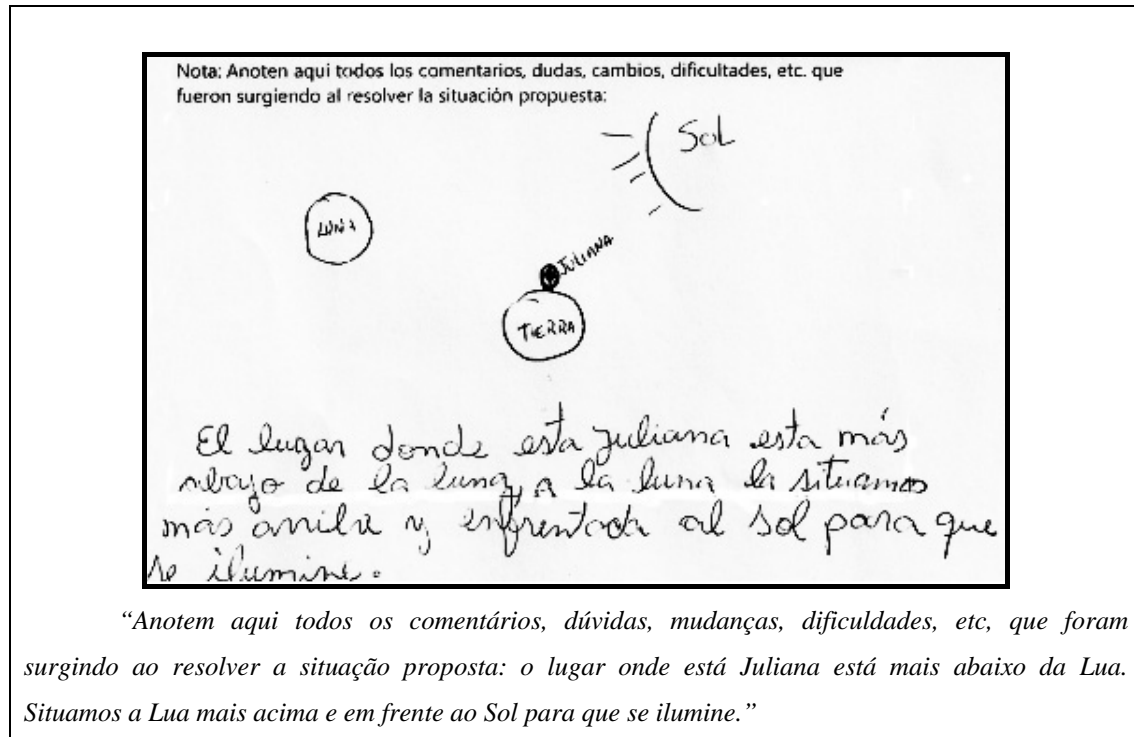 Nota: Anoten aqui todos los comentarios, dudas, cambios, dificultades, etc. que
fueron surgiendo al resolver la situación propuesta:
Sol
LUNA
JULIANA
TIERRA
El lugar donde esta Juliana esta más
abajo de la luna, a la luna la situamos
más arriba y enfrentada al sol para que
se ilumine.
“Anotem aqui todos os comentários, dúvidas, mudanças, dificuldades, etc, que foram
surgindo ao resolver a situação proposta: o lugar onde está Juliana está mais abaixo da Lua.
Situamos a Lua mais acima e em frente ao Sol para que se ilumine.”